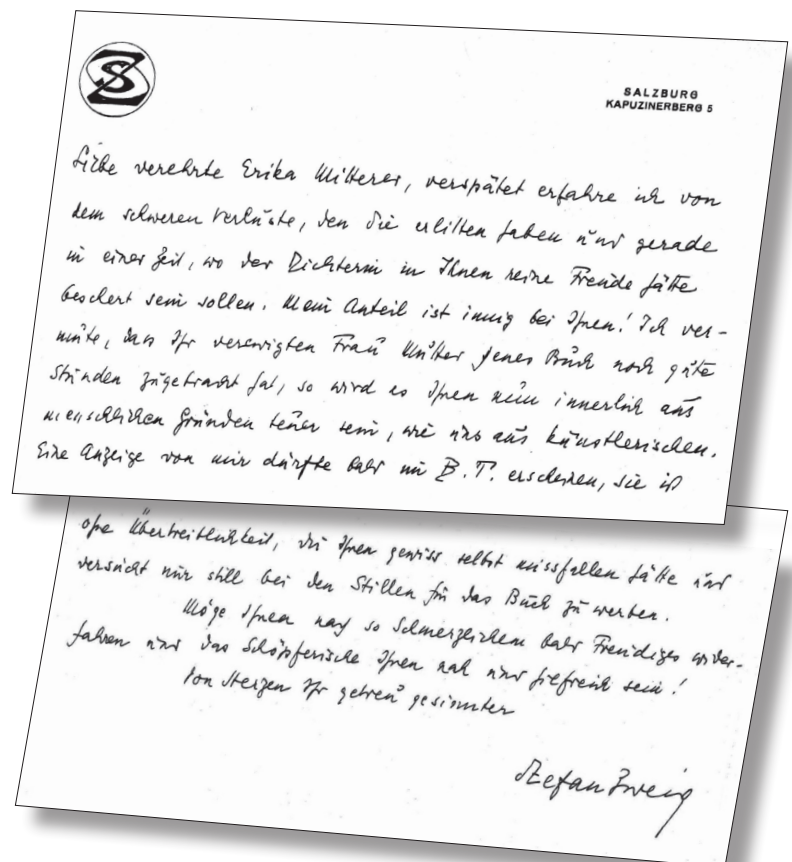 SZ
SALZBURG
KAPUZINERBERG 5
Liebe verehrte Erika Mitterer, verspätet erfahre ich von
dem schweren Verluste, den Sie erlitten haben und gerade
in einer Zeit, wo der Dichterin in Ihnen reine Freude hätte
beschert sein sollen. Mein Anteil ist innig bei Ihnen! Ich ver-
mute, dass Ihr verewigten Frau Mutter jenes Buch noch gute
Stunden zugebracht hat, so wird es Ihnen nun innerlich aus
menschlichen Gründen teuer sein, wie uns aus künstlerischen.
Eine Anzeige von mir dürfte bald im B. T. erscheinen, sie ist
ohne Übertreiblichkeit, die Ihnen gewiss selbst missfallen hätte und
versucht nur still bei den Stillen für das Buch zu werben.
Möge Ihnen nach so Schmerzlichem bald Freudiges wider-
fahren und das Schöpferische Ihnen nah und hilfreich sein!
Von Herzen Ihr getreu gesinnter
Stefan Zweig